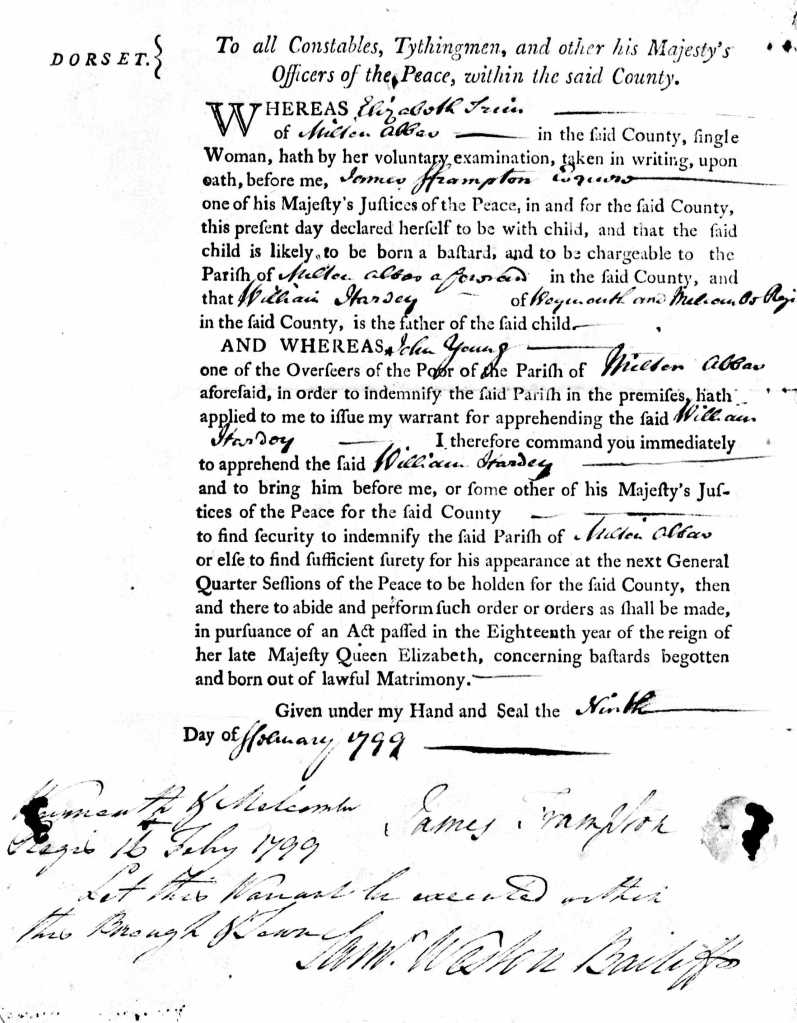 DORSET.
To all Constables, Tythingmen, and other his Majesty's
Officers of the Peace, within the said County.
WHEREAS Elizabeth
of Milton Abbas in the ſaid County, ſingle
Woman, hath by her voluntary examination, taken in writing, upon
oath, before me, James Frampton Esquire
one of his Majeſty's Juſtices of the Peace, in and for the ſaid County,
this preſent day declared herſelf to be with child, and that the ſaid
child is likely to be born a baſtard, and to be chargeable to the
Pariſh of Milton Abbas aforesaid in the ſaid County, and
that William Hardey of Weymouth and Melcombe Regis
in the ſaid County, is the father of the ſaid child.
AND WHEREAS John Young
one of the Overſeers of the Poor of the Pariſh of Milton Abbas
aforeſaid, in order to indemnify the ſaid Pariſh in the premiſes, hath
applied to me to iſſue my warrant for apprehending the ſaid William
Hardey I therefore command you immediately
to apprehend the ſaid William Hardey
and to bring him before me, or ſome other of his Majeſty's Juſ-
tices of the Peace for the ſaid County
to find ſecurity to indemnify the ſaid Pariſh of Milton Abbas
or elſe to find ſufficient ſurety for his appearance at the next General
Quarter Seſſions of the Peace to be holden for the ſaid County, then
and there to abide and perform ſuch order or orders as ſhall be made,
in purſuance of an Act paſſed in the Eighteenth year of the reign of
her late Majeſty Queen Elizabeth, concerning baſtards begotten
and born out of lawful Matrimony.
Given under my Hand and Seal the Ninth
Day of February 1799
James Frampton
Weymouth & Melcombe
Regis 16 Feby 1799
Let this Warrant be executed within
this Borough & Town
Saml. Weston Bailiff